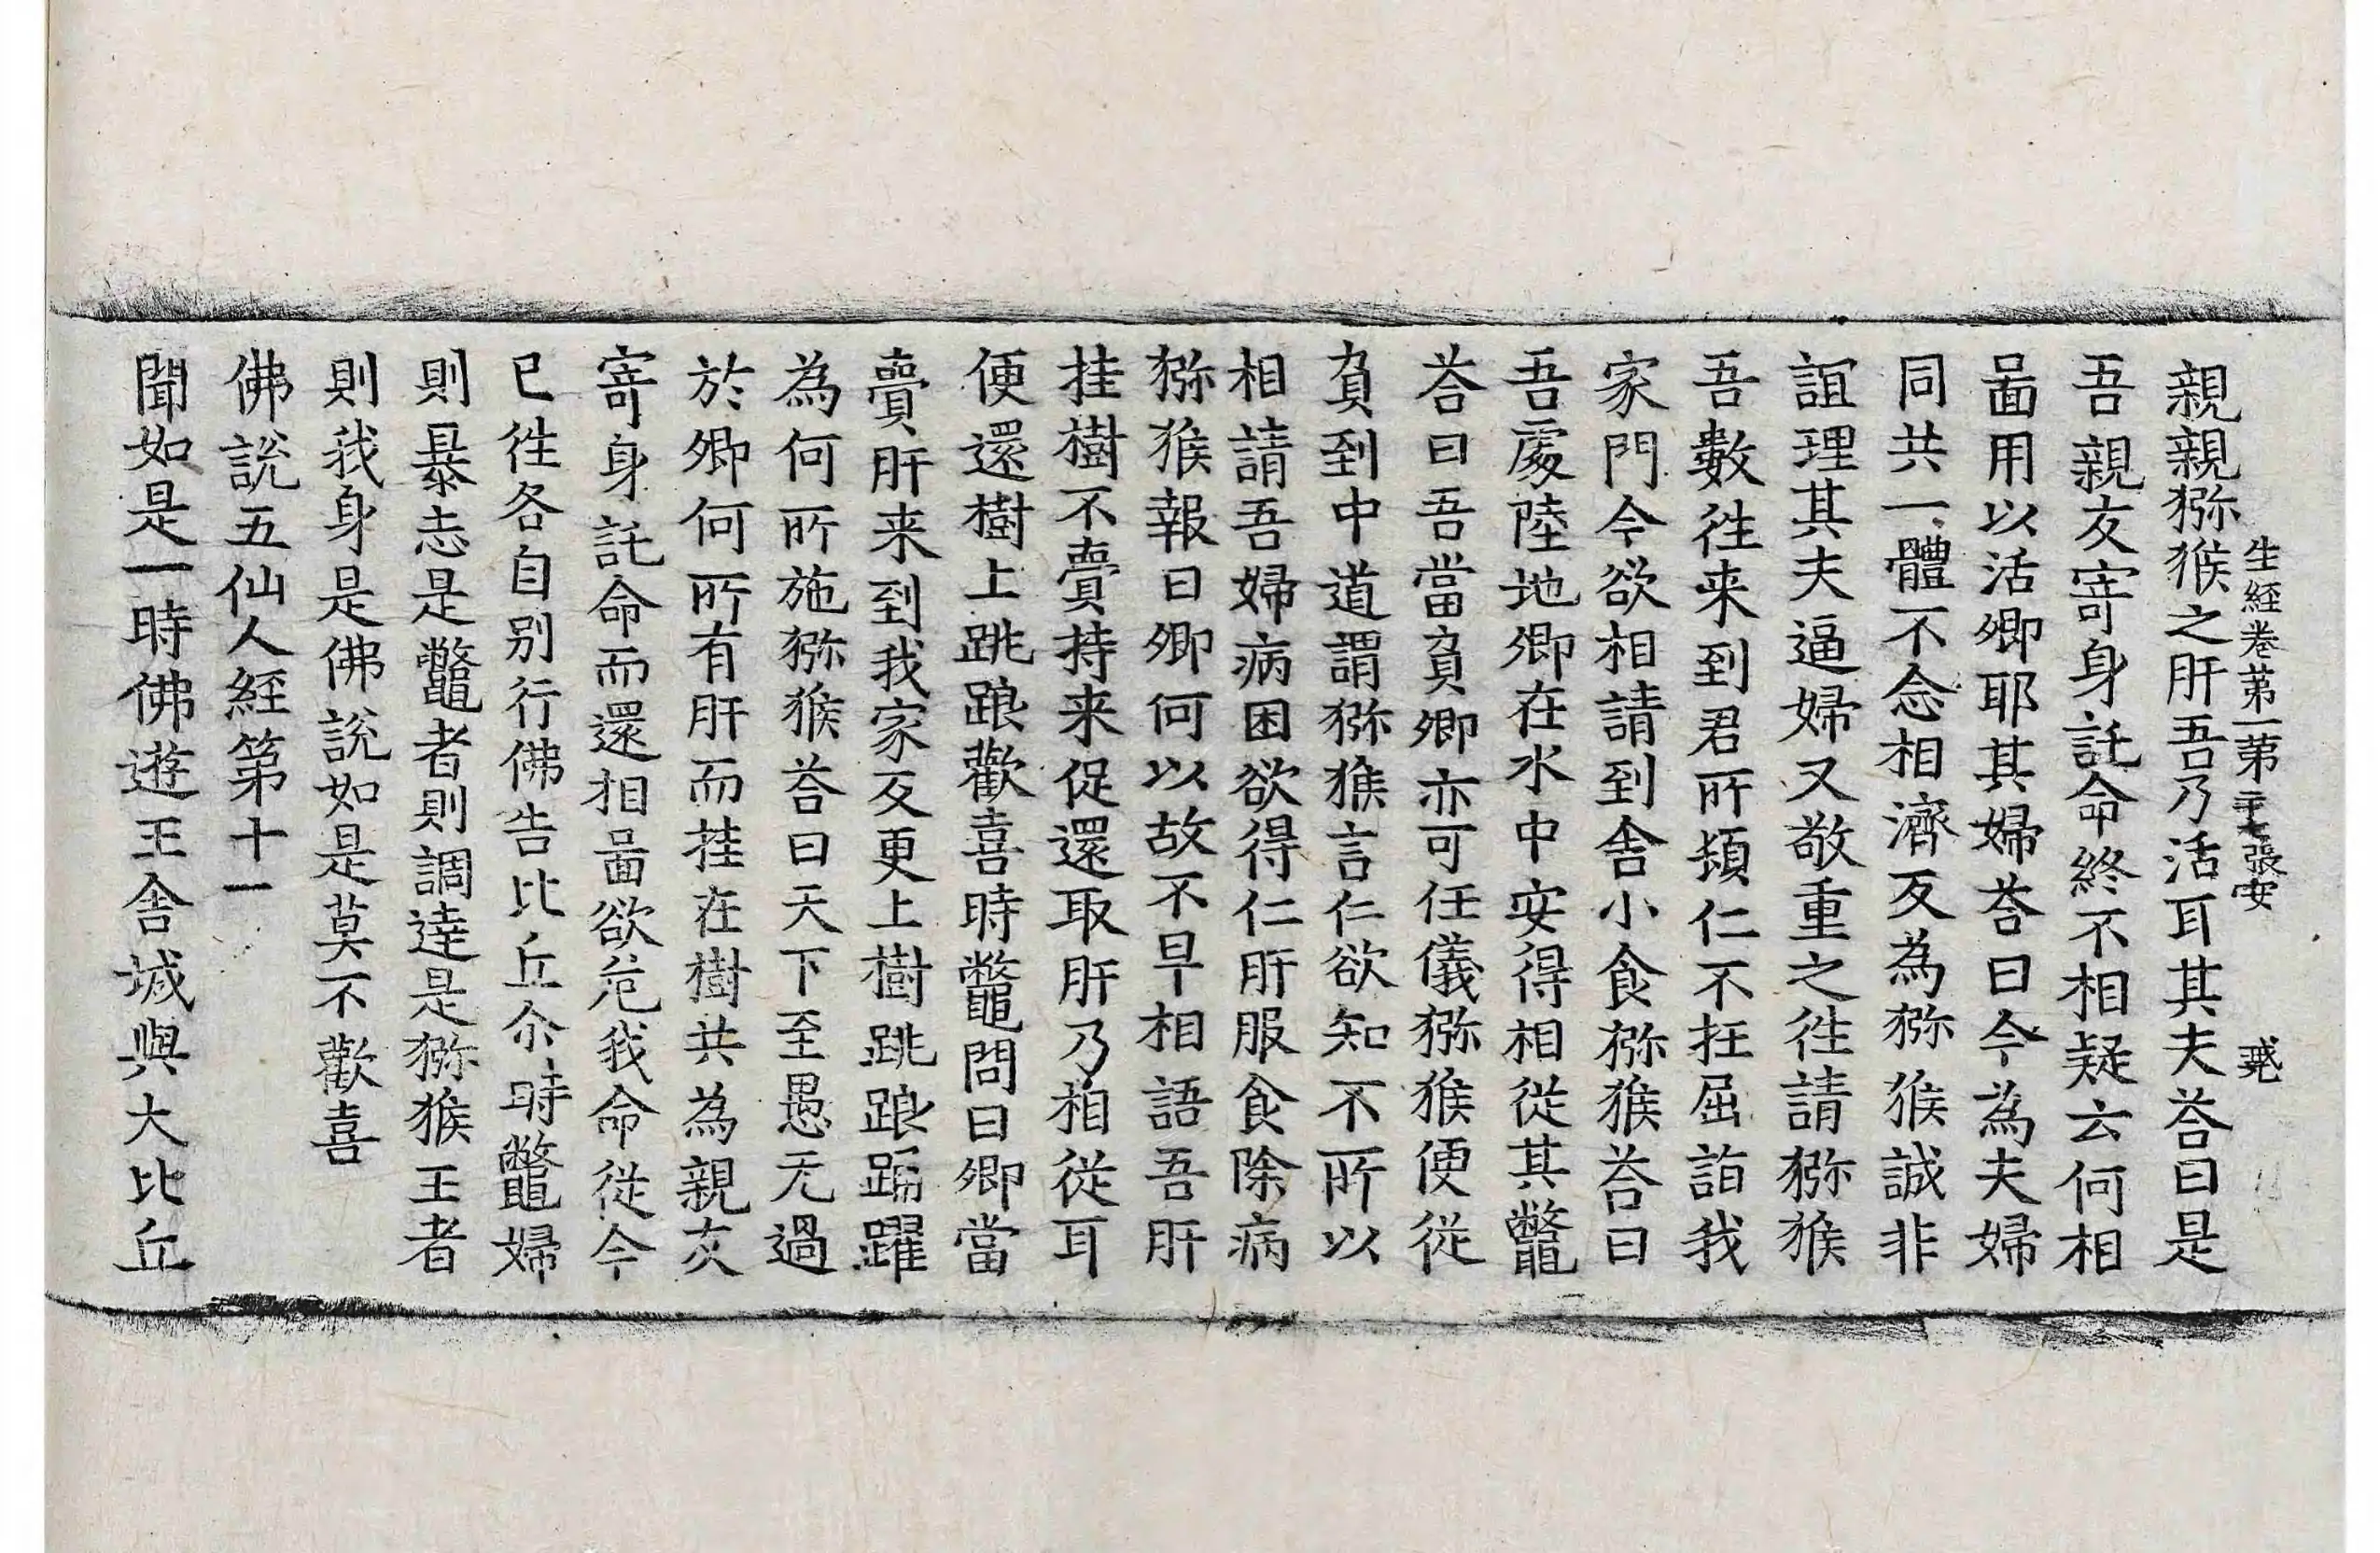 生經卷第一 第二十七張 安
親親猕猴之肝吾乃活耳其夫荅曰是
吾親友寄身託命終不相疑云何相
啚用以活卿耶其婦荅曰今為夫婦
同共一體不念相濟反為猕猴誠非
誼理其夫逼婦又敬重之徃請猕猴
吾數徃来到君所頓仁不抂屈詣我
家門今欲相請到舍小食猕猴荅曰
吾處陸地卿在水中安得相從其鼈
荅曰吾當負卿亦可任儀猕猴便從
負到中道謂猕猴言仁欲知不所以
相請吾婦病困欲得仁肝服食除病
猕猴報曰卿何以故不早相語吾肝
挂樹不賷持来促還取肝乃相從耳
便還樹上跳踉歡喜時鼈問曰卿當
賷肝来到我家反更上樹跳踉踊躍
為何所施猕猴荅曰天下至愚无過
於卿何所有肝而挂在樹共為親友
寄身託命而還相啚欲危我命從今
已徃各自别行佛告比丘尒時鼈婦
則暴志是鼈者則調達是猕猴王者
則我身是佛說如是莫不歡喜
佛說五仙人經第十一
聞如是一時佛遊王舍城與大比丘